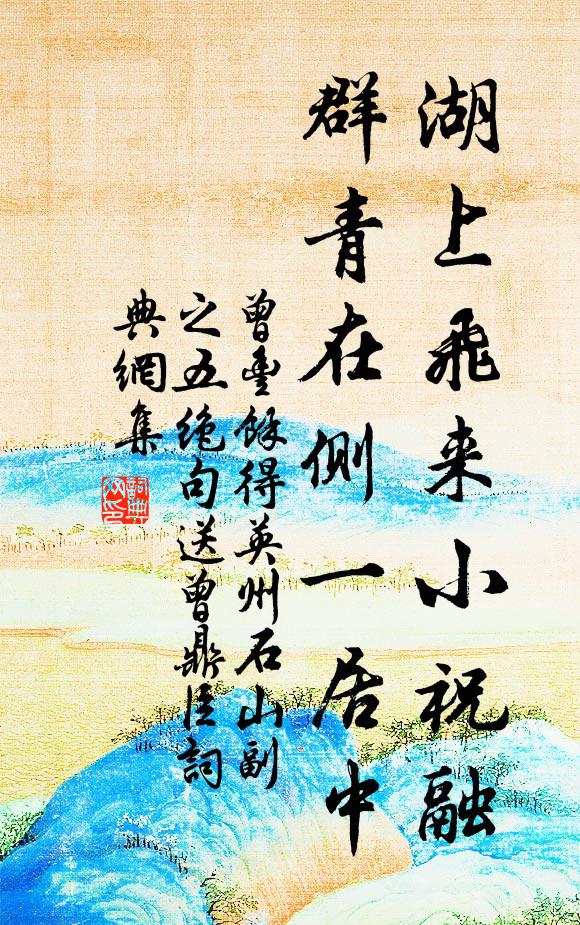 湖上飛来小祝融
群青在側一居中
曾豊餘得英州石山副
之五絶句送曾鼎臣詞
典網集
詞典